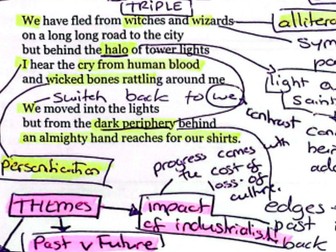 TRIPLE
We have fled from witches and wizards
on a long long road to the city
but behind the halo of tower lights
I hear the cry from human blood
and wicked bones rattling around me
switch back to we
We moved into the lights
but from the dark periphery behind
an almighty hand reaches for our shirts.
allitera
sym
po
light ou
Sain
contrast
Personification
progress comes
w/ the cost of
loss. of
culture.
THEMES
impact
of industrialis
Past v Future
edges
past